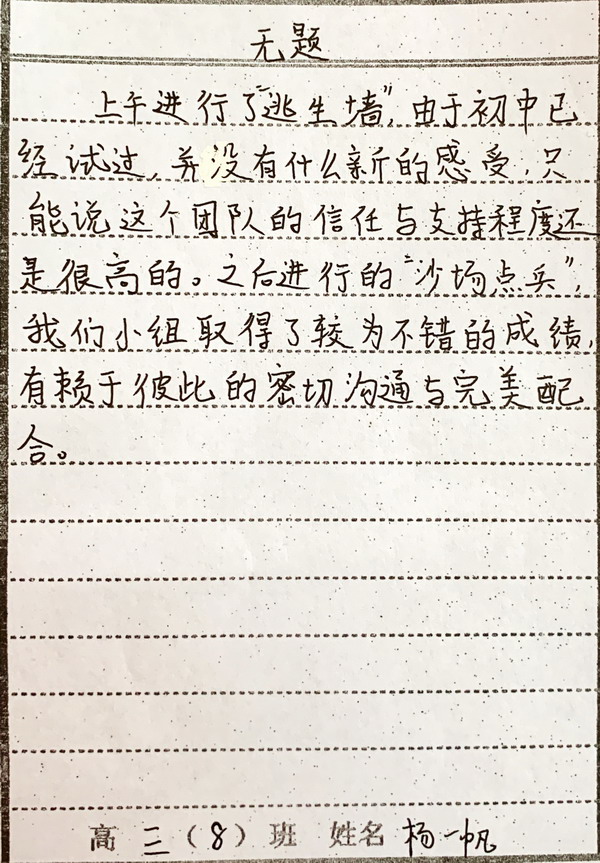 无题
上午进行了“逃生墙”，由于初中已
经试过，并没有什么新的感受，只
能说这个团队的信任与支持程度还
是很高的。之后进行的“沙场点兵”，
我们小组取得了较为不错的成绩，
有赖于彼此的密切沟通与完美配
合。
高二（8）班 姓名 杨一帆